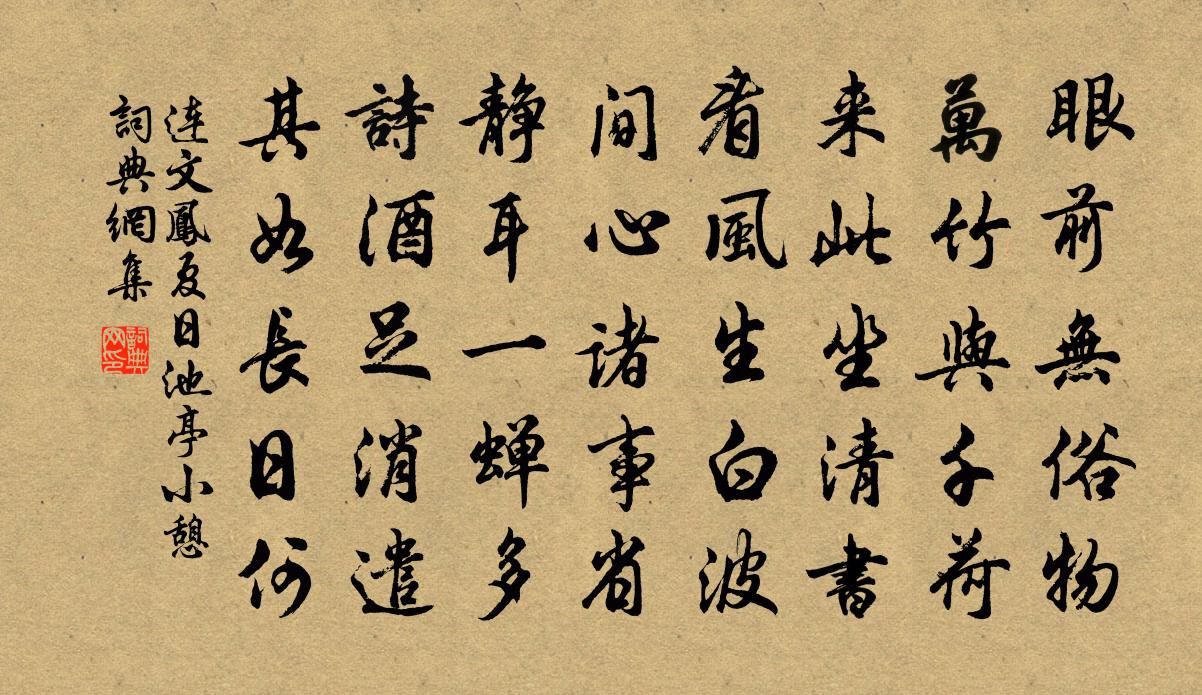 眼前無俗物
萬竹與千荷
来此坐清書
看風生白波
间心諸事省
静耳一蝉多
詩酒足消遣
其如長日何
连文鳳夏日池亭小憩
詞典網集
詞典网印